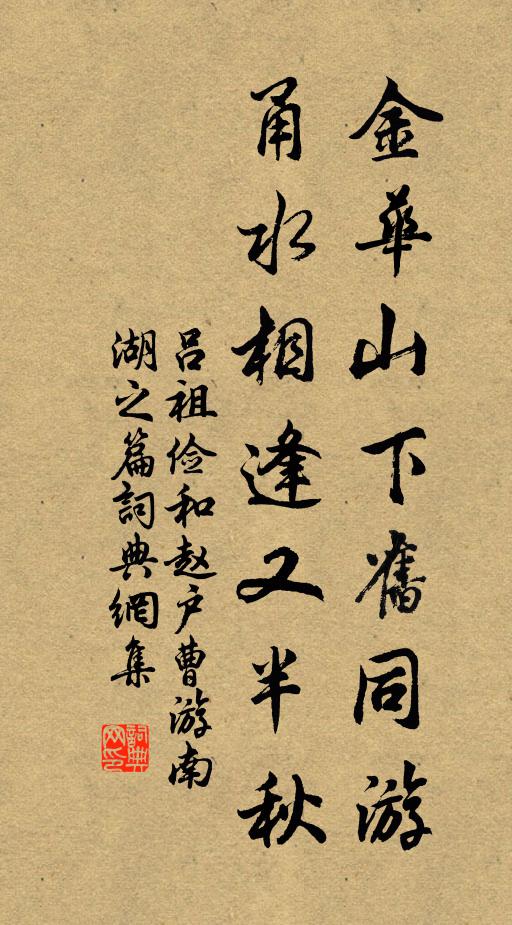 金華山下舊同游
甬水相逢又半秋
吕祖俭和赵户曹游南
湖之篇詞典網集
詞典网印